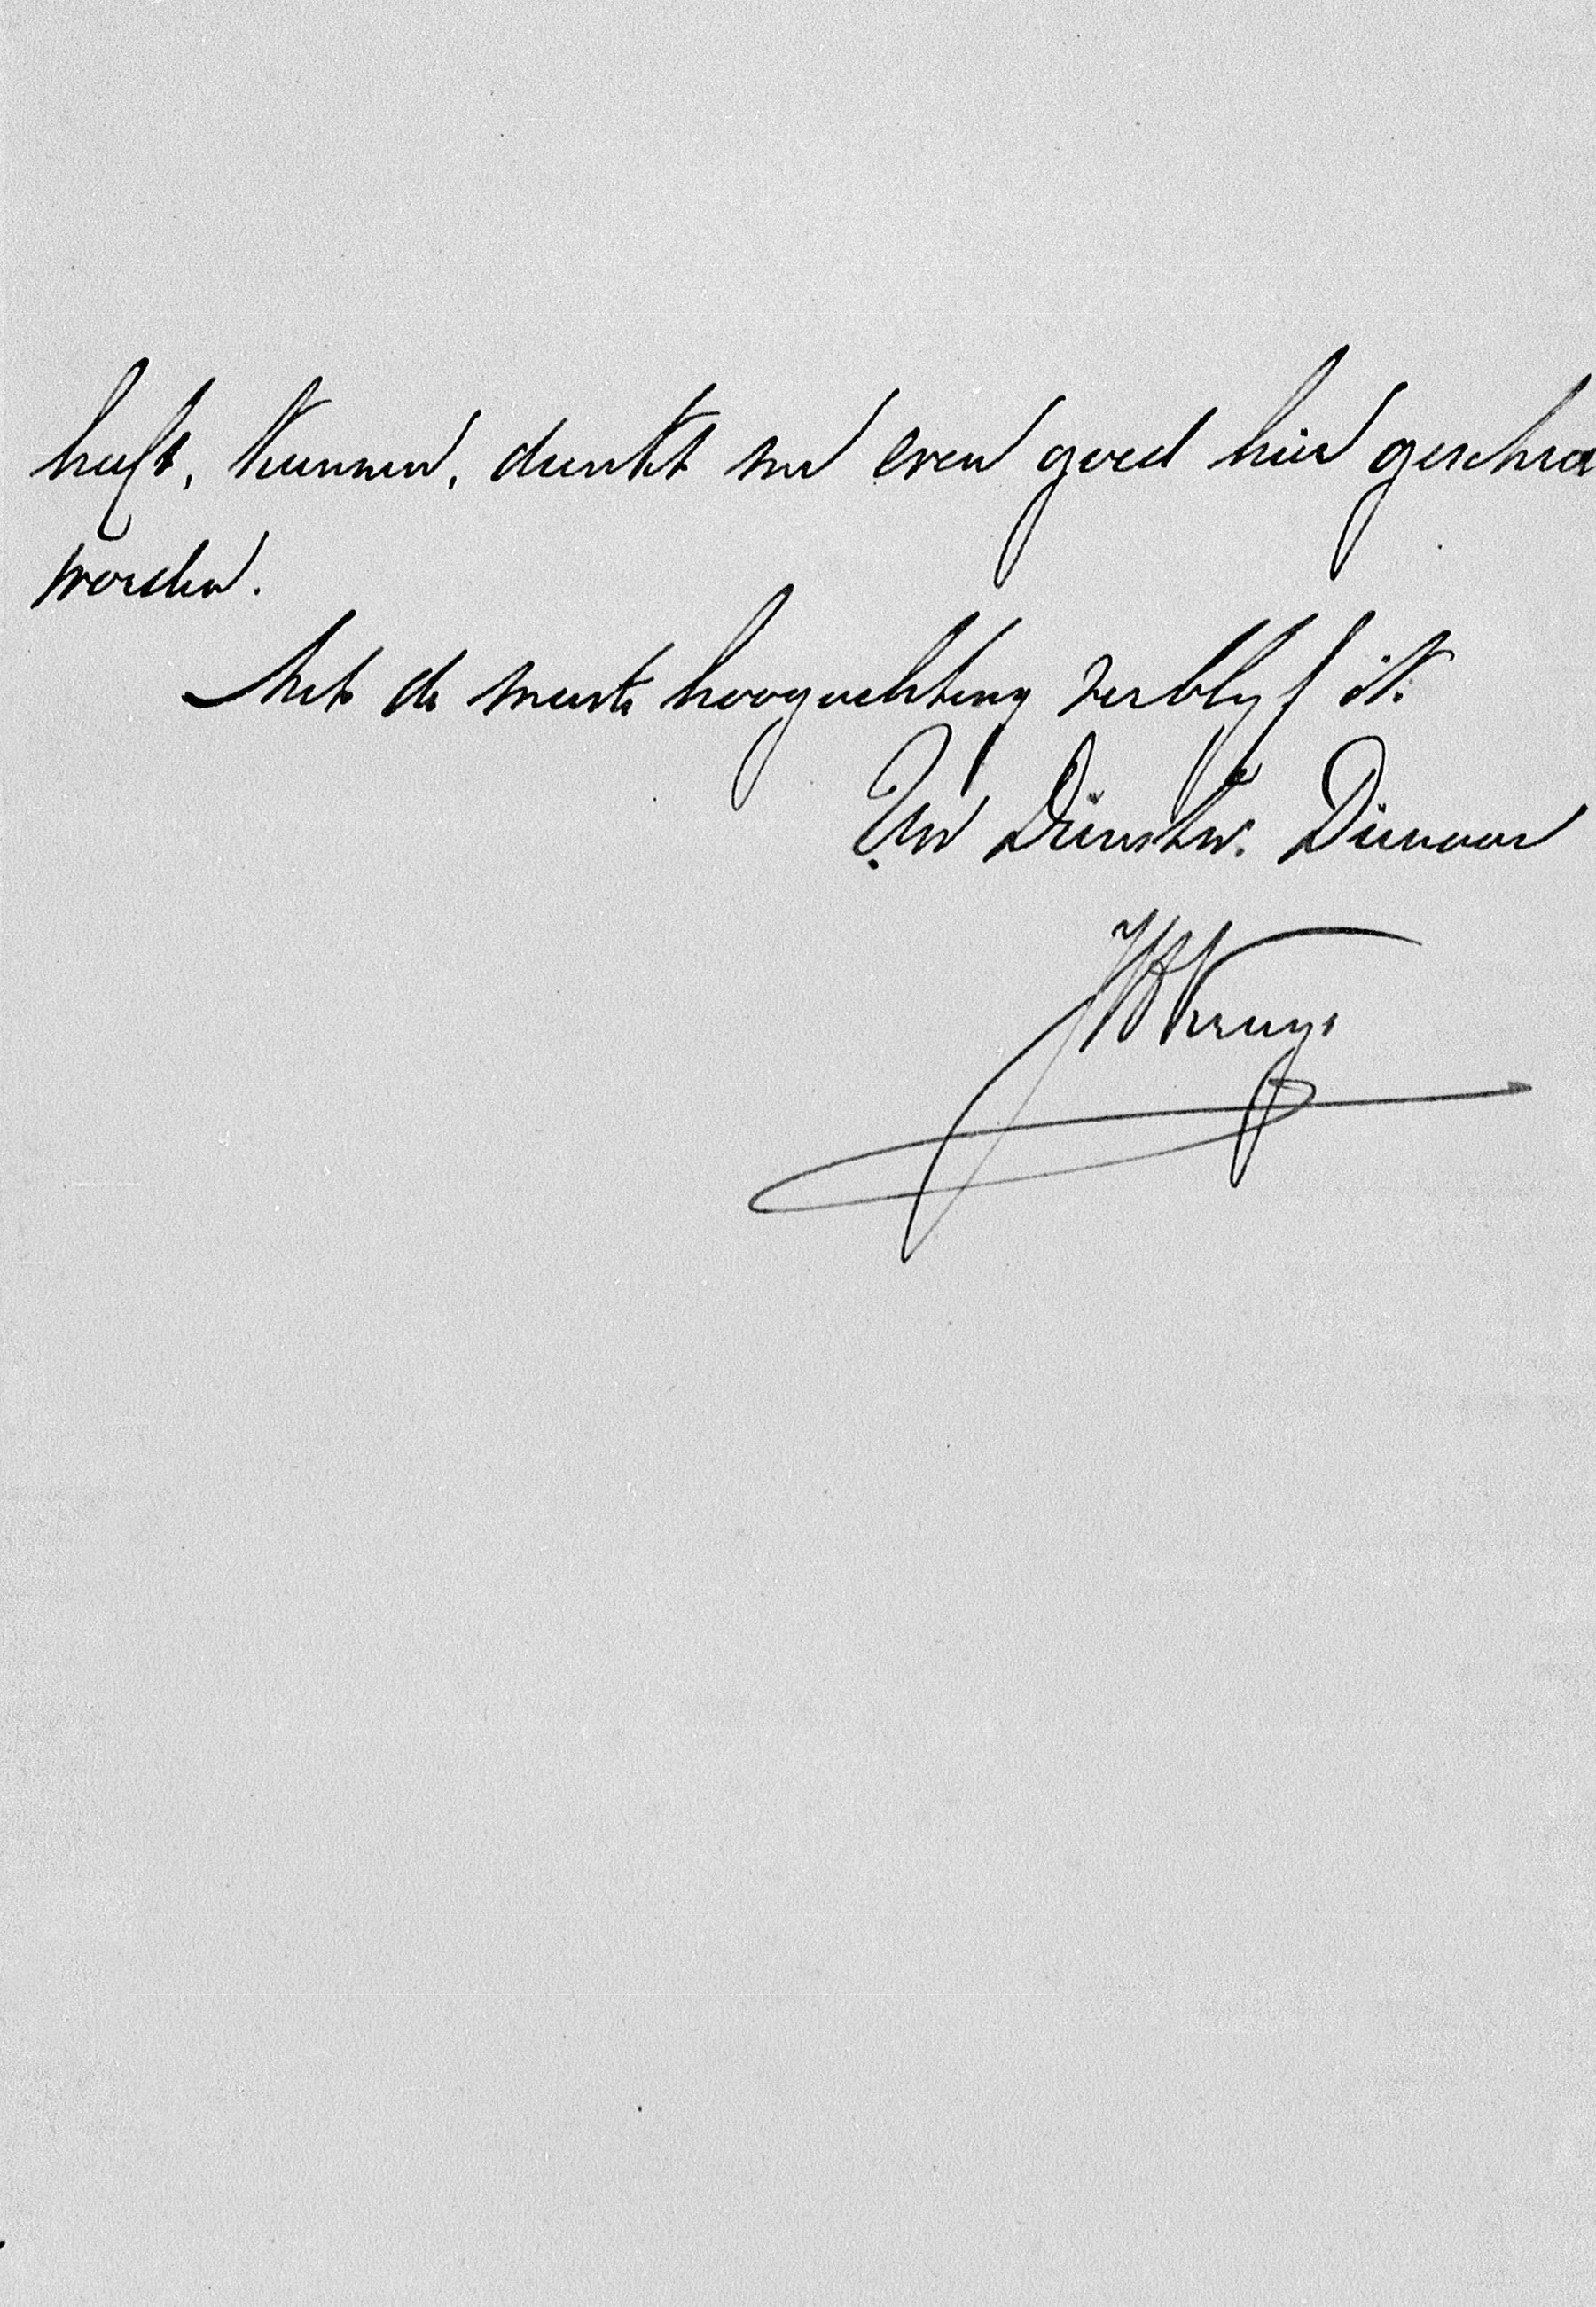 heeft, kunnen, dunkt me even goed hier geschra
worden.
Met de meeste hoogachting verblijf ik
Uw Dienstw. Dienaar
Kruys